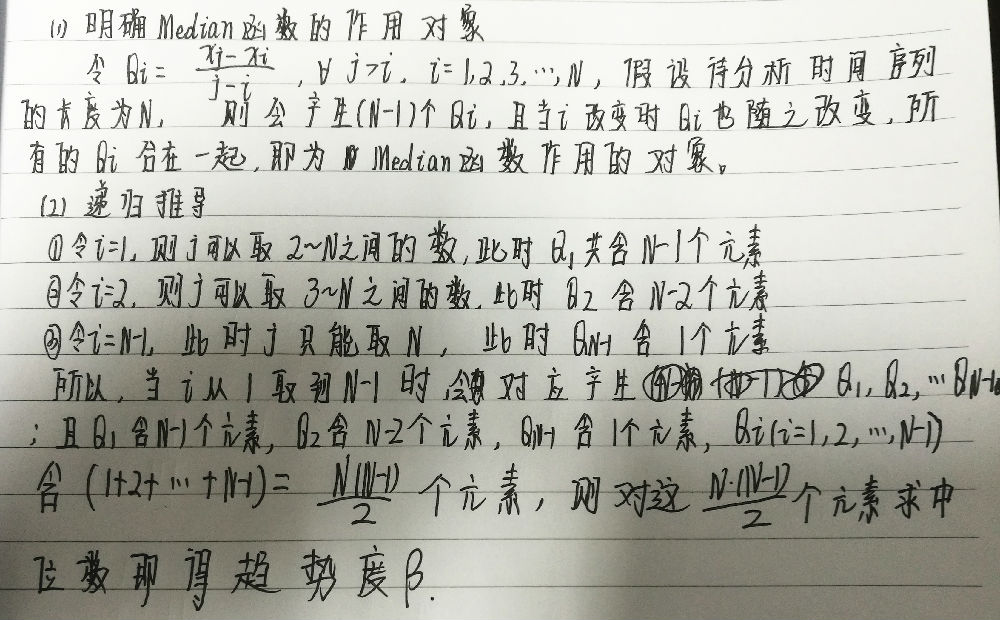 (1) 明确Median函数的作用对象
令 Qi = (xj-xi)/(j-i), ∀ j>i, i=1,2,3,…,N, 假设待分析时间序列
的长度为N, 则会产生(N-1)个Qi, 且当i改变时Qi也随之改变, 所
有的Qi合在一起, 即为Median函数作用的对象。
(2) 递归推导
①令i=1, 则j可以取2~N之间的数, 此时Q1共含N-1个元素
②令i=2, 则j可以取3~N之间的数, 此时Q2含N-2个元素
③令i=N-1, 此时j只能取N, 此时QN-1含1个元素
所以, 当i从1取到N-1时, 会对应产生 Q1, Q2, …QN-1
; 且Q1含N-1个元素, Q2含N-2个元素, QN-1含1个元素, Qi(i=1,2,…,N-1)
含(1+2+…+N-1)= N(N-1)/2 个元素, 则对这 N·(N-1)/2 个元素求中
位数即得趋势度β.